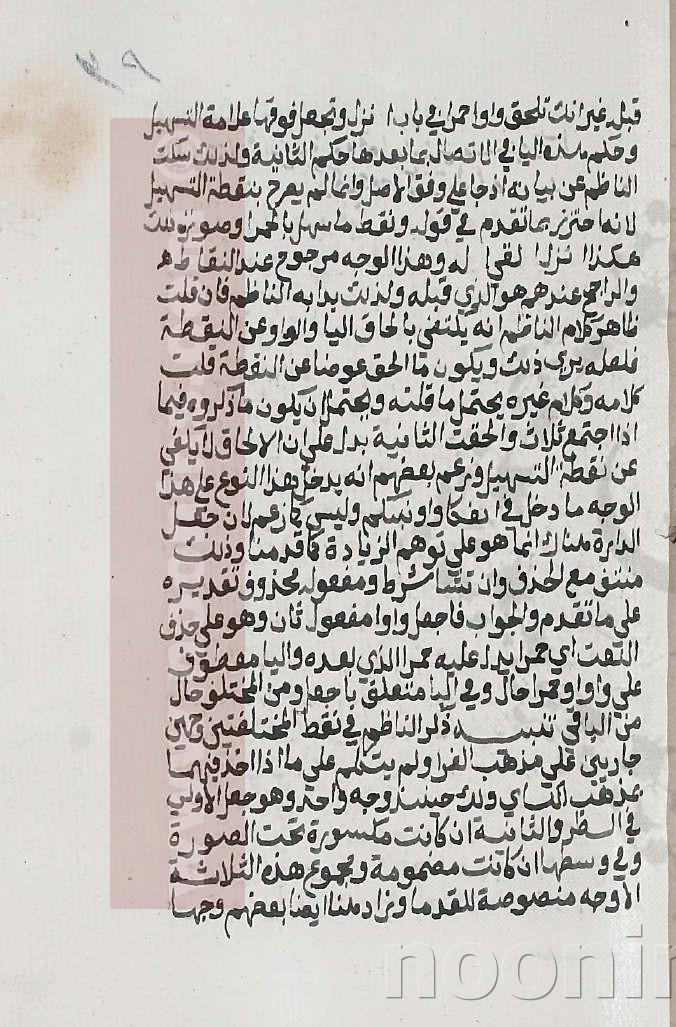 ٣٩
قبله غير انك تلحق واوا حمرا في بابا انزل وتجعل فوقها علامة التسهيل
وحكم هذه اليا في الاتصال بما بعدها حكم الثانية ولذلك سكت
الناظم عن بيانه اذ جا على وفق الاصل وانما لم يصرح بنقطة التسهيل
لانه احترز بما تقدم في قوله ونقط ما سهل بالحمرا وصورة ذلك
هكذا انزل القي له وهذا الوجه مرجوح عند النقاط
والراجح عندهم هو الذي قبله ولذلك بدا به الناظم فان قلت
ظاهر كلام الناظم انه يكتفي بالحاق اليا والواو عن النقطة
فلعله يرى ذلك ويكون ما الحق عوضا عن النقطة قلت
كلامه وكلام غيره يحتمل ما قلته ويحتمل ان يكون ما ذكروه فيما
اذا اجتمع ثلاث والحقت الثانية يدل على ان الالحاق لا يكفي
عن نقطة التسهيل وزعم بعضهم انه يدخل هذا النوع على هذا
الوجه ما دخل في ائفكا واونبئكم وليس كما زعم لان جعل
الدارة هنالك انما هو على توهم الزيادة كما قدمنا وذلك
منتف مع الحذف وان تشا شرط ومفعوله محذوف تقديره
على ما تقدم والجواب فاجعل واوا مفعول ثان وهو على حذف
النعت اي حمرا يدل عليه حمرا الذي بعده واليا معطوف
على واوا وحمرا حال وفي اليا متعلق باجعل ومن المختلف حال
من الباقي تنبيه ذكر الناظم في نقط المختلفتين وجهين
جاريين على مذهب الفرا ولم يتكلم على ما اذا اخذ فيهما
بمذهب الكساي ولك حينئذ وجه واحد وهو جعل الاولى
في السطر والثانية ان كانت مكسورة تحت الصورة
وفي وسطها ان كانت مضمومة ومجموع هذه الثلاثة
الاوجه منصوصة للقدما وزاد هنا ايضا بعضهم وجها
noonin